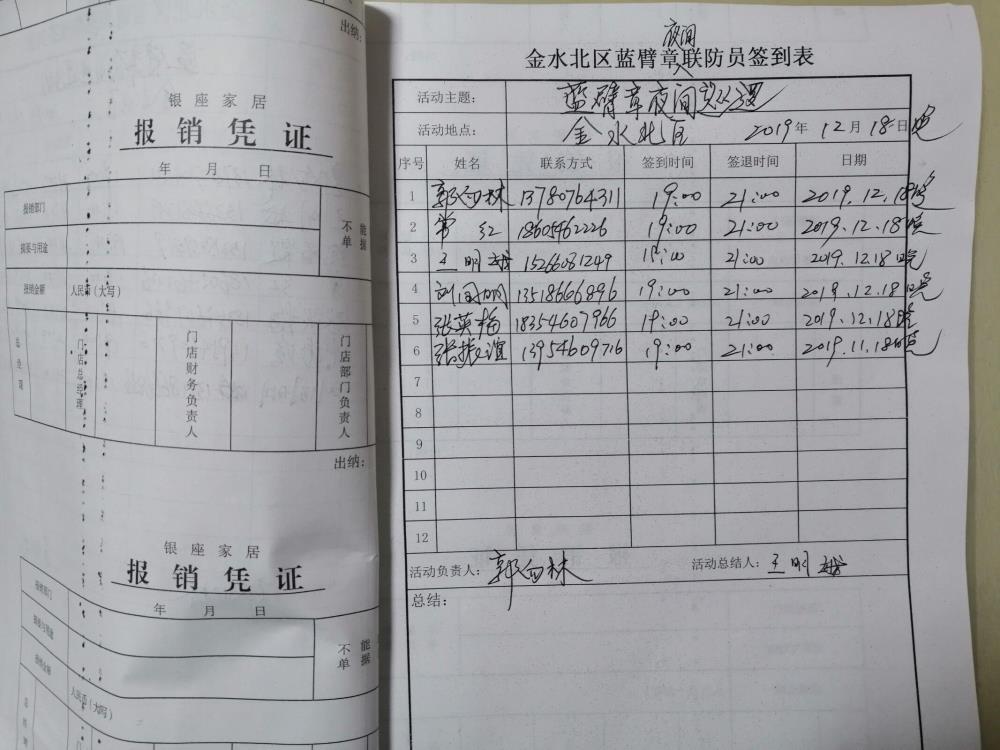 出纳:
银座家居
报销凭证
年 月 日
报销部门
摘要与用途
报销金额 人民币(大写)
不能
单据
总经理
门店总经理
门店财务负责人
门店部门负责人
出纳:
银座家居
报销凭证
年 月 日
报销部门
摘要与用途
报销金额
人民币(大写)
不能
单据
夜间
金水北区蓝臂章联防员签到表
活动主题: 蓝臂章夜间巡逻
活动地点: 金水北区 2019年12月18日晚
序号 姓名 联系方式 签到时间 签退时间 日期
1 郭向林 13780764311 19:00 21:00 2019.12.18晚
2 常红 18605462226 19:00 21:00 2019.12.18晚
3 王明 15266081249 19:00 21:00 2019.12.18晚
4 刘国明 13518666896 19:00 21:00 2019.12.18晚
5 张英梅 18354607966 19:00 21:00 2019.12.18晚
6 张振谊 13954609716 19:00 21:00 2019.11.18晚
7
8
9
10
11
12
活动负责人: 郭向林 活动总结人: 王明
总结: